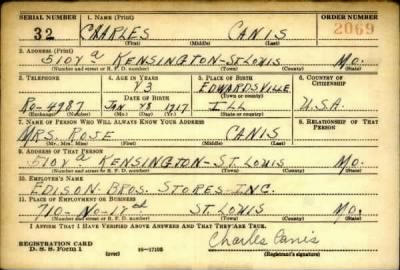 SERIAL NUMBER 1. NAME (Print) ORDER NUMBER
32 CHARLES CANIS 2069
(First) (Middle) (Last)
2. ADDRESS (Print)
510 KENSINGTON-ST LOUIS MO.
(Number and street or R. F. D. number) (Town) (County) (State)
3. TELEPHONE 4. AGE IN YEARS 5. PLACE OF BIRTH 6. COUNTRY OF CITIZENSHIP
23 EDWARDSVILLE
DATE OF BIRTH (Town or county)
RO-4987 JAN 1917 ILL U.S.A.
(Exchange) (Number) (Mo.) (Day) (Yr.) (State or country)
7. NAME OF PERSON WHO WILL ALWAYS KNOW YOUR ADDRESS 8. RELATIONSHIP OF THAT PERSON
MRS. ROSE CANIS
(Mr., Mrs., Miss) (First) (Middle) (Last)
9. ADDRESS OF THAT PERSON
510 KENSINGTON-ST. LOUIS MO.
(Number and street or R. F. D. number) (Town) (County) (State)
10. EMPLOYER'S NAME
EDISON BROS. STORES-INC.
11. PLACE OF EMPLOYMENT OR BUSINESS
710-NO-12 ST LOUIS MO.
(Number and street or R. F. D. number) (Town) (County) (State)
I AFFIRM THAT I HAVE VERIFIED ABOVE ANSWERS AND THAT THEY ARE TRUE.
Charles Canis
REGISTRATION CARD
D. S. S. Form 1 (over) 16—17105 (Registrant's signature)